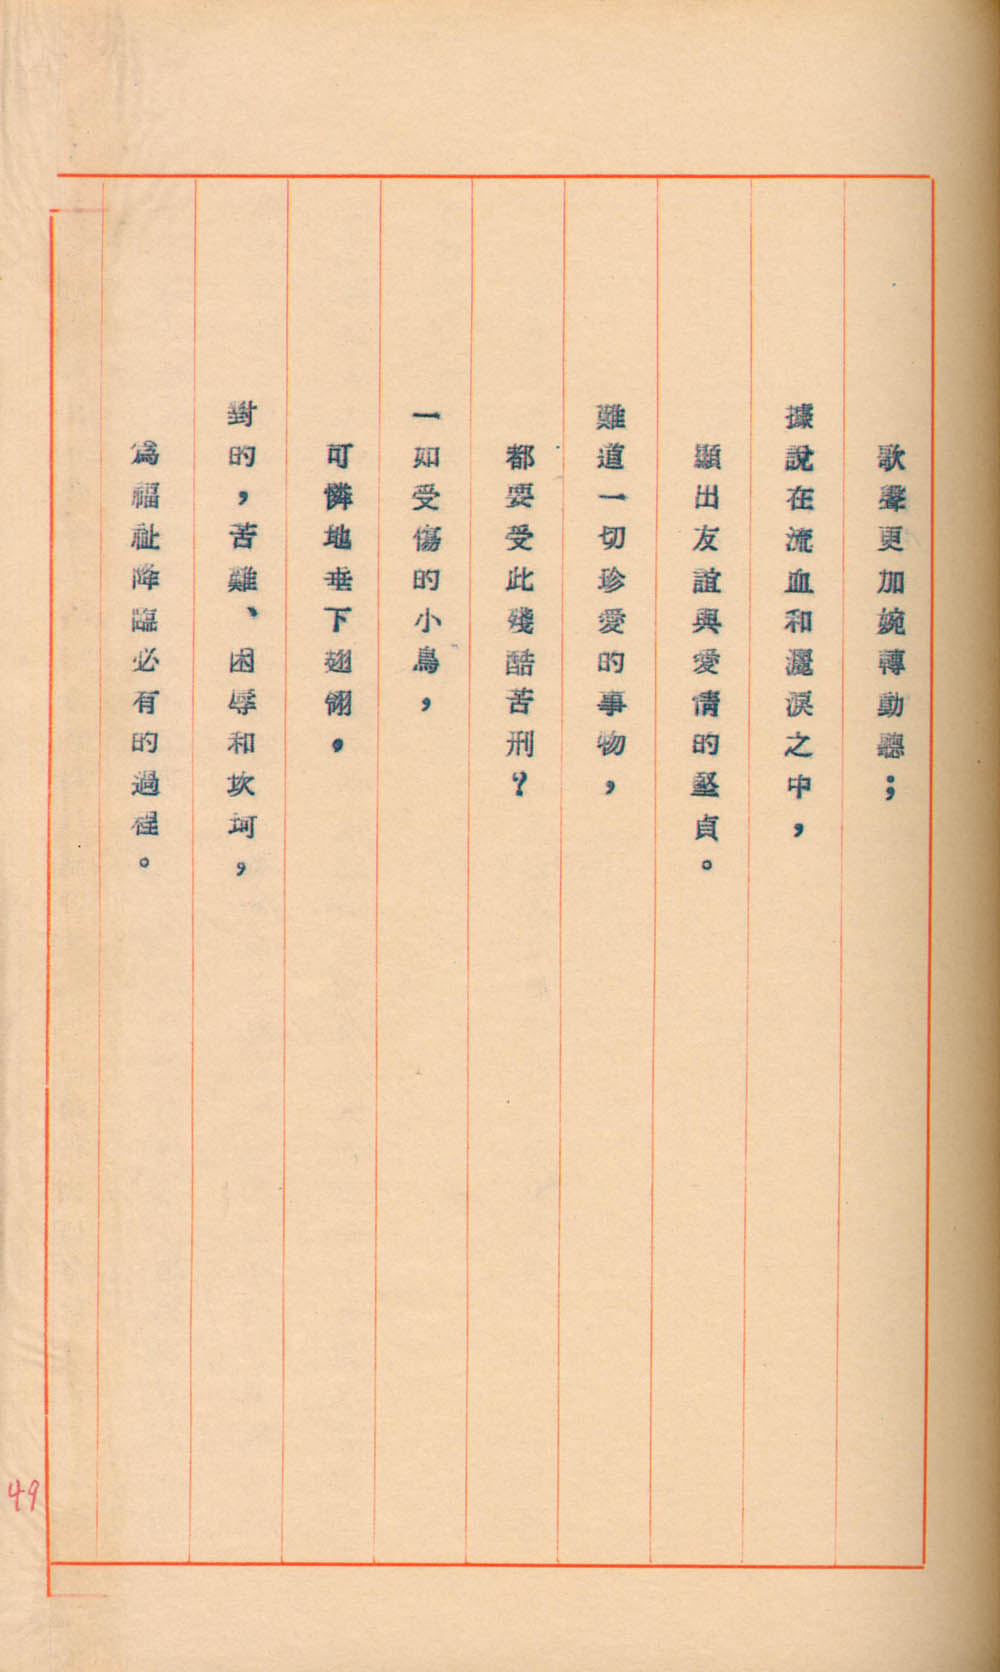 歌聲更加婉轉動聽；
據說在流血和灑淚之中，
顯出友誼與愛情的堅貞。
難道一切珍愛的事物，
都要受此殘酷苦刑？
一如受傷的小鳥，
可憐地垂下翅翎。
對的，苦難、困辱和坎坷，
為福祉降臨必有的過程。
49